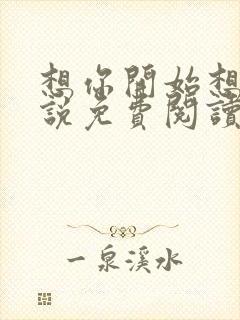 想你開始想
說免費閱讀
一泉溪水